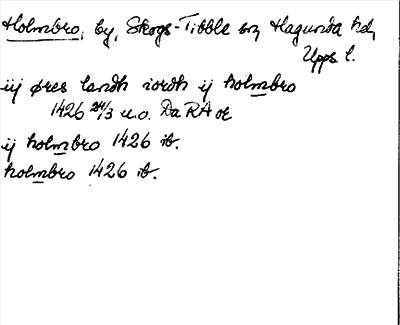 Holmbro, by, Skogs-Tibble sn, Hagunda hd,
Upps l.
iij øres landh iordh ij holmbro
1426 24/3 u.o. Da RA or
ij holmbro 1426 ib.
holmbro 1426 ib.